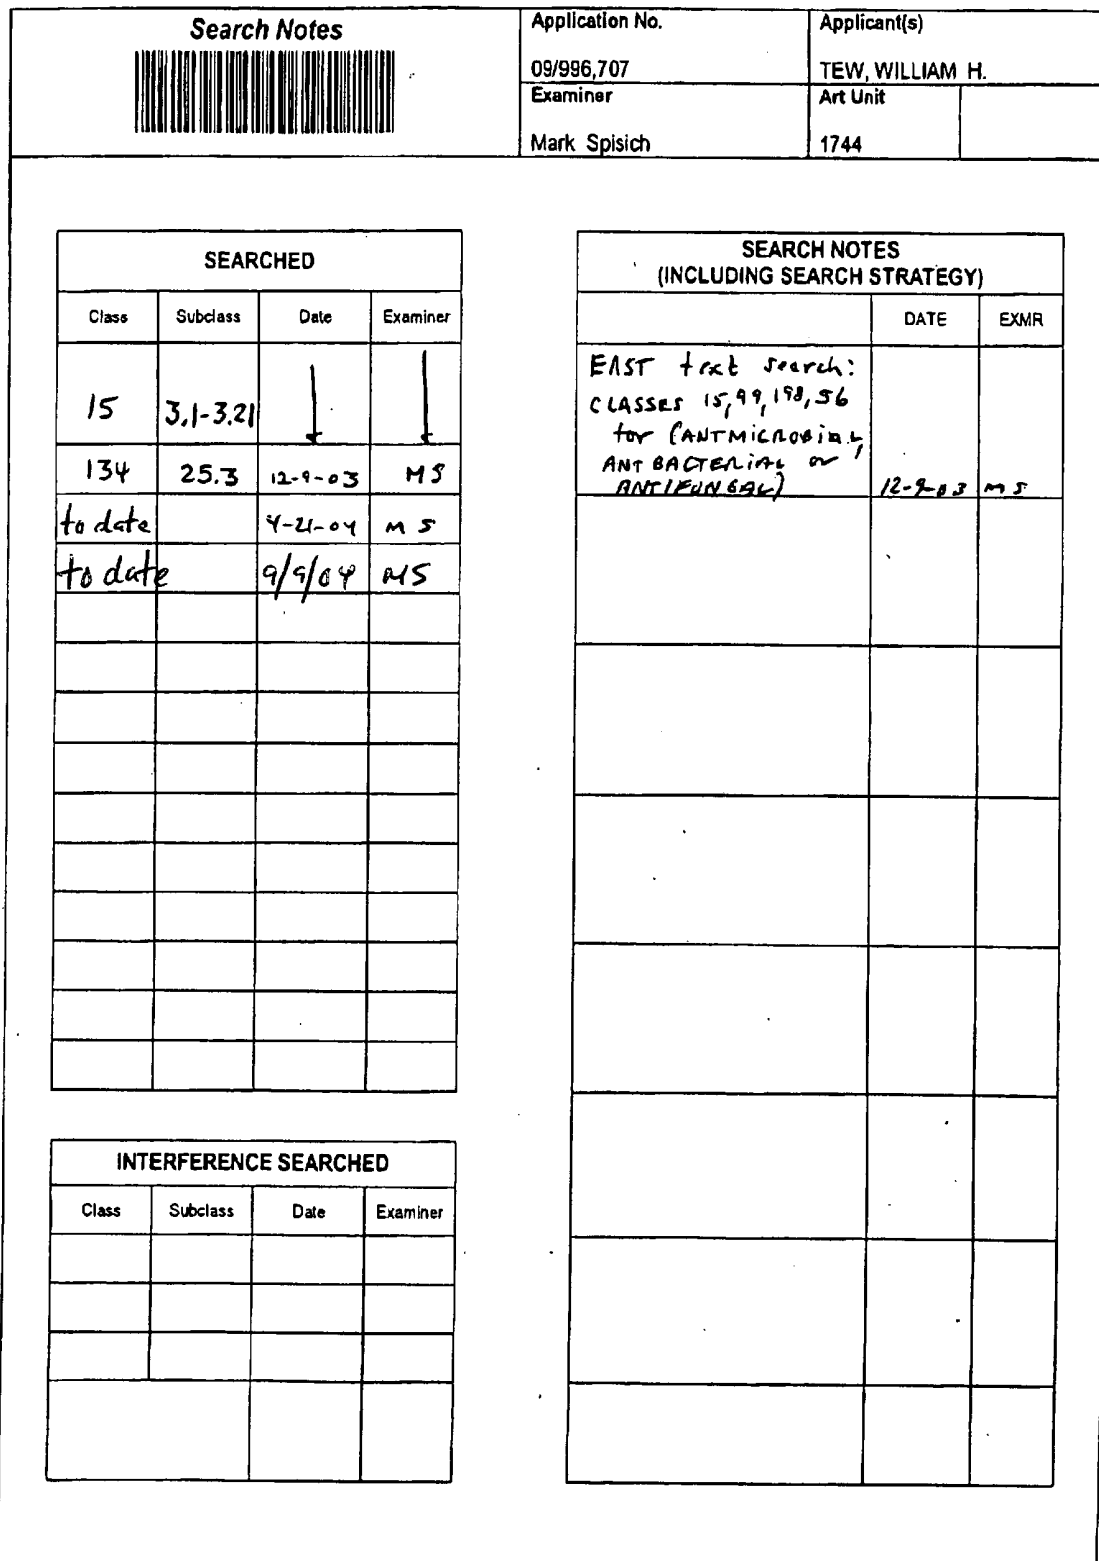 Search Notes
Application No.
Applicant(s)
09/996,707
TEW, WILLIAM H.
Examiner
Art Unit
Mark Spisich
1744
SEARCHED
Class Subclass Date Examiner
15 3.1-3.21
134 25.3 12-9-03 MS
to date 4-21-04 MS
to date 9/9/04 MS
INTERFERENCE SEARCHED
Class Subclass Date Examiner
SEARCH NOTES
(INCLUDING SEARCH STRATEGY)
DATE EXMR
EAST text search:
CLASSES 15,99,198,56
for (ANTMICROBIAL,
ANTBACTERIAL or
ANTIFUNGAL) 12-9-03 MS